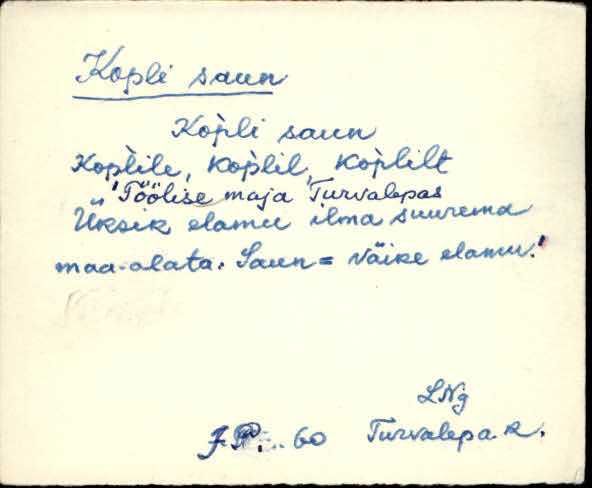 Kopli saun
Kop̀li saun
Kop̀lile, kop̀lil, kop̀lilt
'Töölise maja Turvalepas
Üksik elamu ilma suurema
maa-alata. Saun = väike elamu.'
LNg
J.P. 60 Turvalepa k.